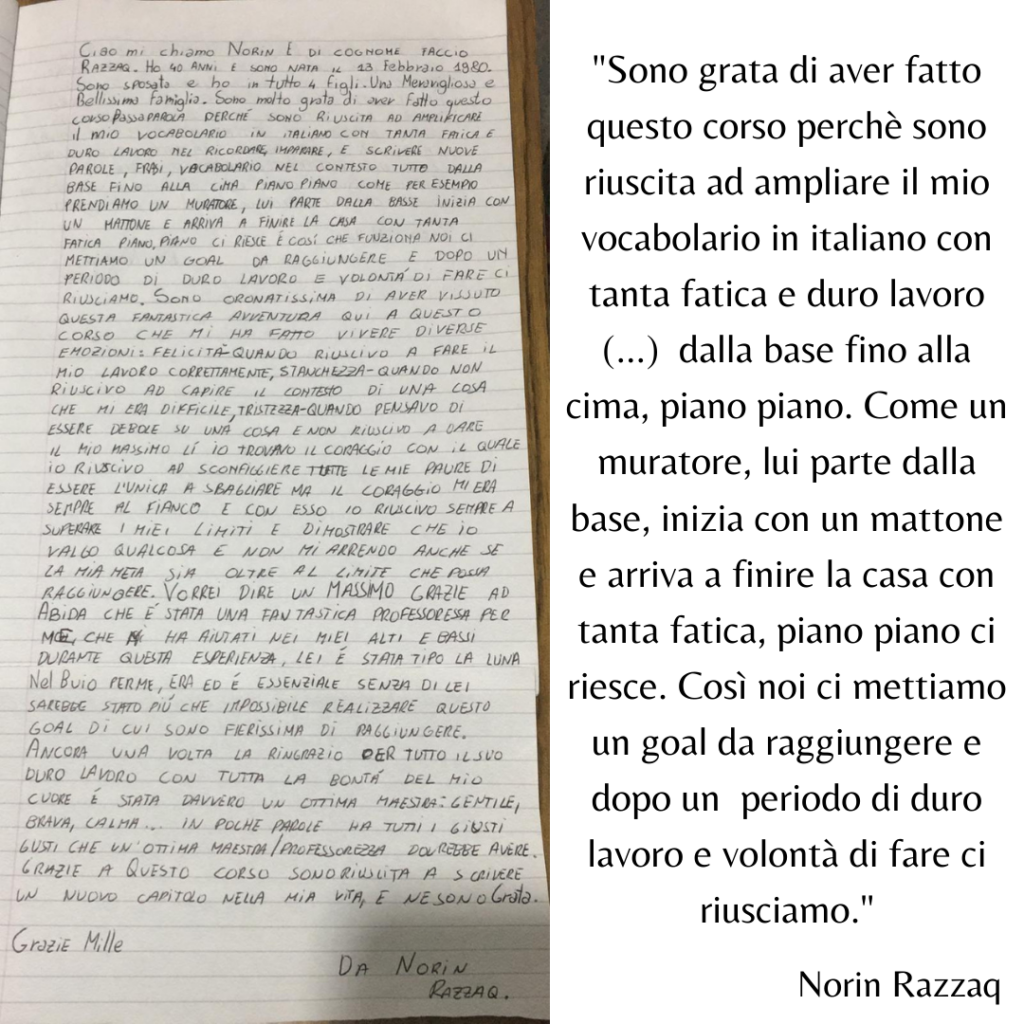 Ciao mi chiamo NORIN E DI COGNOME FACCIO
RAZZAQ. Ho 40 ANNI E SONO NATA IL 13 Febbraio 1980.
Sono sposata e ho in tutto 4 figli. Una Meravigliosa e
Bellissima famiglia. Sono molto grata di aver fatto questo
CORSO PASSAPAROLA PERCHÉ SONO RIUSCITA AD AMPLIFICARE
il mio VOCABOLARIO IN ITALIANO CON TANTA FATICA E
DURO LAVORO NEL RICORDARE, IMPARARE, E SCRIVERE NUOVE
PAROLE, FRASI, VOCABOLARIO NEL CONTESTO TUTTO DALLA
BASE FINO ALLA CIMA PIANO PIANO COME PER ESEMPIO
PRENDIAMO UN MURATORE, LUI PARTE DALLA BASSE INIZIA CON
UN MATTONE E ARRIVA A FINIRE LA CASA CON TANTA
FATICA PIANO, PIANO CI RIESCE É COSÍ CHE FUNZIONA NOI CI
METTIAMO UN GOAL DA RAGGIUNGERE E DOPO UN
PERIODO DI DURO LAVORO E VOLONTÁ DI FARE CI
RIUSCIAMO. SONO ORONATISSIMA DI AVER VISSUTO
QUESTA FANTASTICA AVVENTURA QUI A QUESTO
CORSO CHE MI HA FATTO VIVERE DIVERSE
EMOZIONI: FELICITÁ-QUANDO RIUSCIVO A FARE IL
MIO LAVORO CORRETTAMENTE, STANCHEZZA-QUANDO NON
RIUSCIVO AD CAPIRE IL CONTESTO DI UNA COSA
CHE MI ERA DIFFICILE, TRISTEZZA-QUANDO PENSAVO DI
ESSERE DEBOLE SU UNA COSA E NON RIUSCIVO A DARE
IL MIO MASSIMO LÍ IO TROVAVO IL CORAGGIO CON IL QUALE
IO RIUSCIVO AD SCONFIGGIERE TUTTE LE MIE PAURE DI
ESSERE L'UNICA A SBAGLIARE MA IL CORAGGIO MI ERA
SEMPRE AL FIANCO E CON ESSO IO RIUSCIVO SEMPRE A
SUPERARE I MIEI LIMITI E DIMOSTRARE CHE IO
VALGO QUALCOSA E NON MI ARRENDO ANCHE SE
LA MIA META SIA OLTRE AL LIMITE CHE POSSA
RAGGIUNGERE. VORREI DIRE UN MASSIMO GRAZIE AD
ABIDA CHE É STATA UNA FANTASTICA PROFESSORESSA PER
ME, CHE HA AIUTATI NEI MIEI ALTI E BASSI
DURANTE QUESTA ESPERIENZA, LEI É STATA TIPO LA LUNA
Nel BUIO PERME, ERA ED É ESSENZIALE SENZA DI LEI
SAREBBE STATO PIÚ CHE IMPOSSIBILE REALIZZARE QUESTO
GOAL DI CUI SONO FIERISSIMA DI RAGGIUNGERE.
ANCORA UNA VOLTA LA RINGRAZIO PER TUTTO IL SUO
DURO LAVORO CON TUTTA LA BONTÁ DEL MIO
CUORE É STATA DAVVERO UN OTTIMA MAESTRA: GENTILE,
BRAVA, CALMA... IN POCHE PAROLE HA TUTTI I GIUSTI
GUSTI CHE UN'OTTIMA MAESTRA/PROFESSOREZZA DOUREBBE AVERE.
GRAZIE A QUESTO CORSO SONO RIUSCITA A SCRIVERE
UN NUOVO CAPITOLO NELLA MIA VITA, E NE SONO Grata.
Grazie Mille
DA NORIN
RAZZAQ.
"Sono grata di aver fatto
questo corso perchè sono
riuscita ad ampliare il mio
vocabolario in italiano con
tanta fatica e duro lavoro
(...) dalla base fino alla
cima, piano piano. Come un
muratore, lui parte dalla
base, inizia con un mattone
e arriva a finire la casa con
tanta fatica, piano piano ci
riesce. Così noi ci mettiamo
un goal da raggiungere e
dopo un periodo di duro
lavoro e volontà di fare ci
riusciamo."
Norin Razzaq